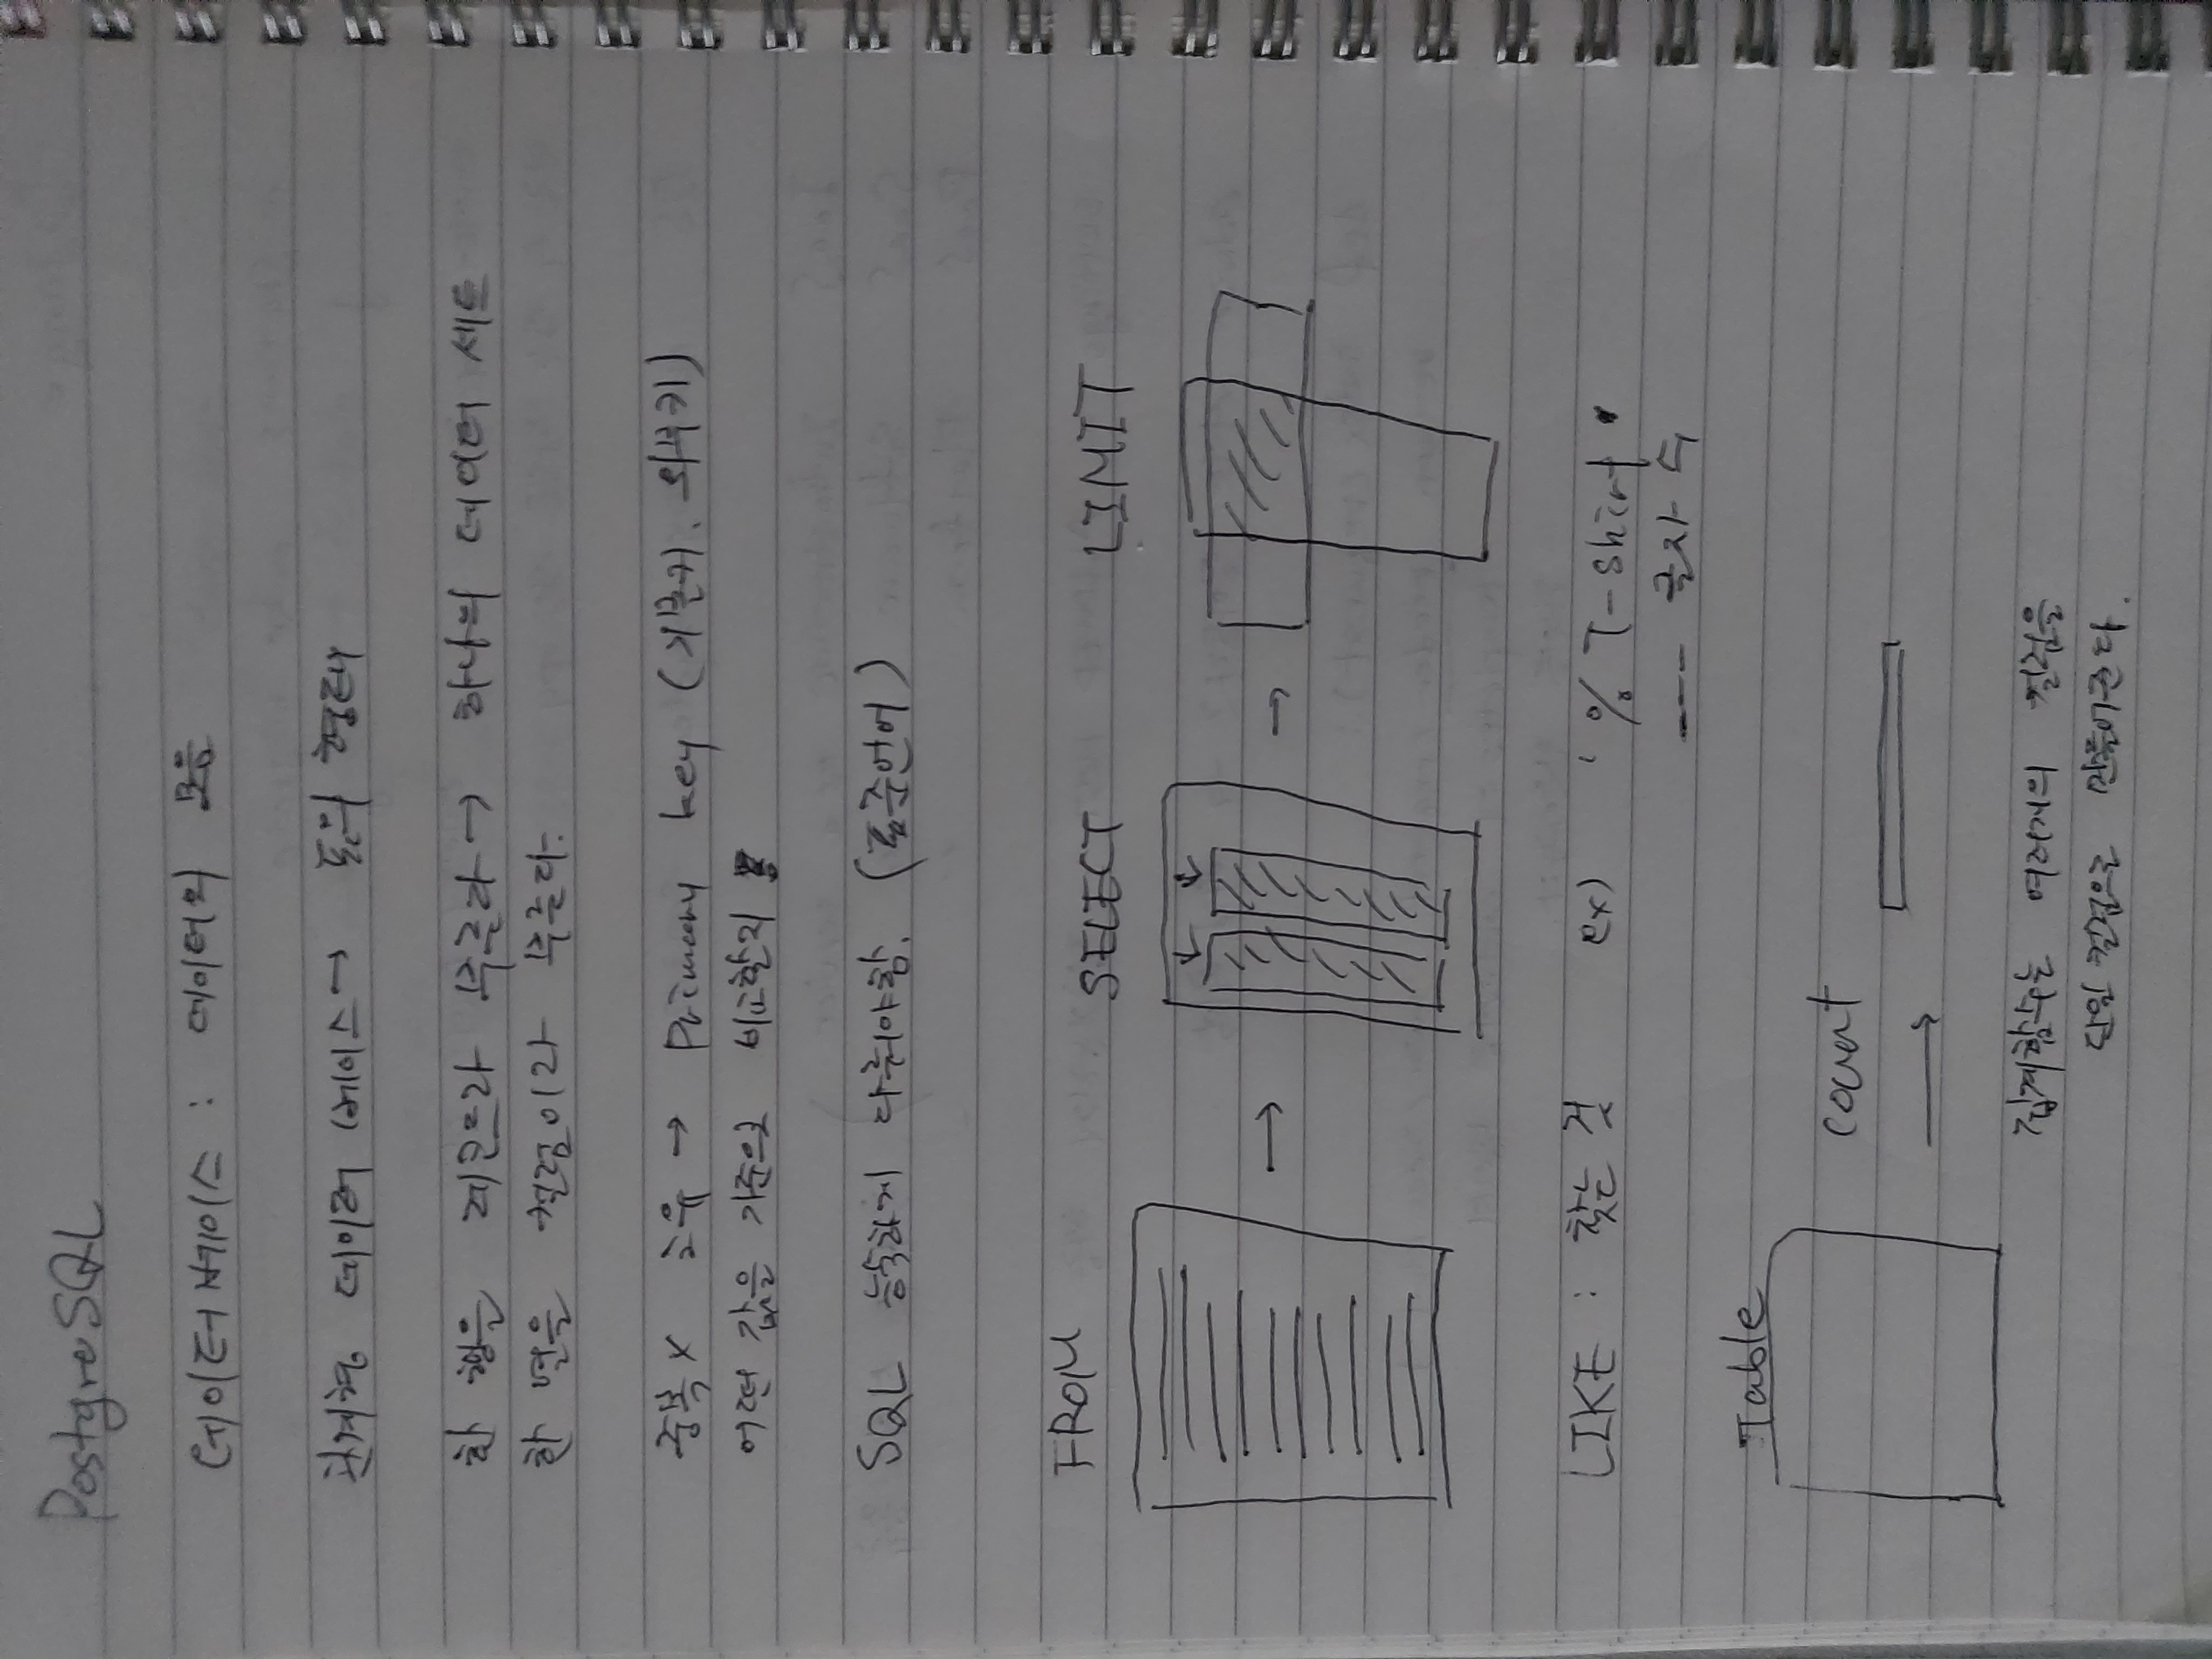 PostgreSQL
데이터베이스 : 데이터의 모음
관계형 데이터 베이스 → 표의 형태
한 행을 레코드라 부른다 → 하나의 데이터 세트
한 열을 컬럼이라 부른다.
중복 x 고유 → Primary key (기본키, 외부키)
어떤 값을 기준으로 비교할지
SQL 능숙하게 다뤄야함. (표준언어)
FROM
SELECT
LIMIT
→ →
LIKE : 찾는 것 ex) ' % T-shirt '
--- 글자 수
Table
count
→
집계함수는 여러개의 컬럼을
단일 컬럼으로 만들어준다.